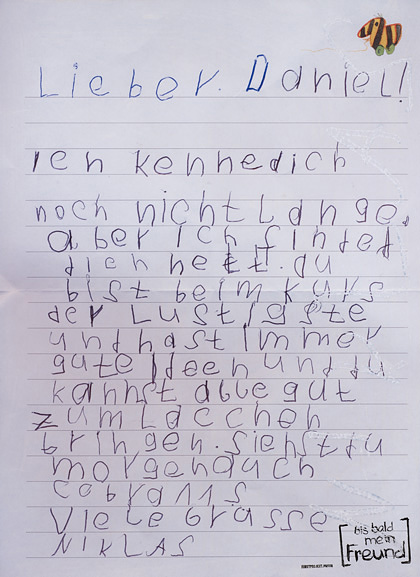 Lieber Daniel!
Ich kennedich
noch nicht Lange.
aber ich finded
dich nett. du
bist beim kurs
der Lustigste
und hast immer
gute Ideen und du
kannst alle gut
zum Lacchen
bringen. Siehst du
morgen auch
Viele Grasse
NIKLAS
bis bald
mein
Freund